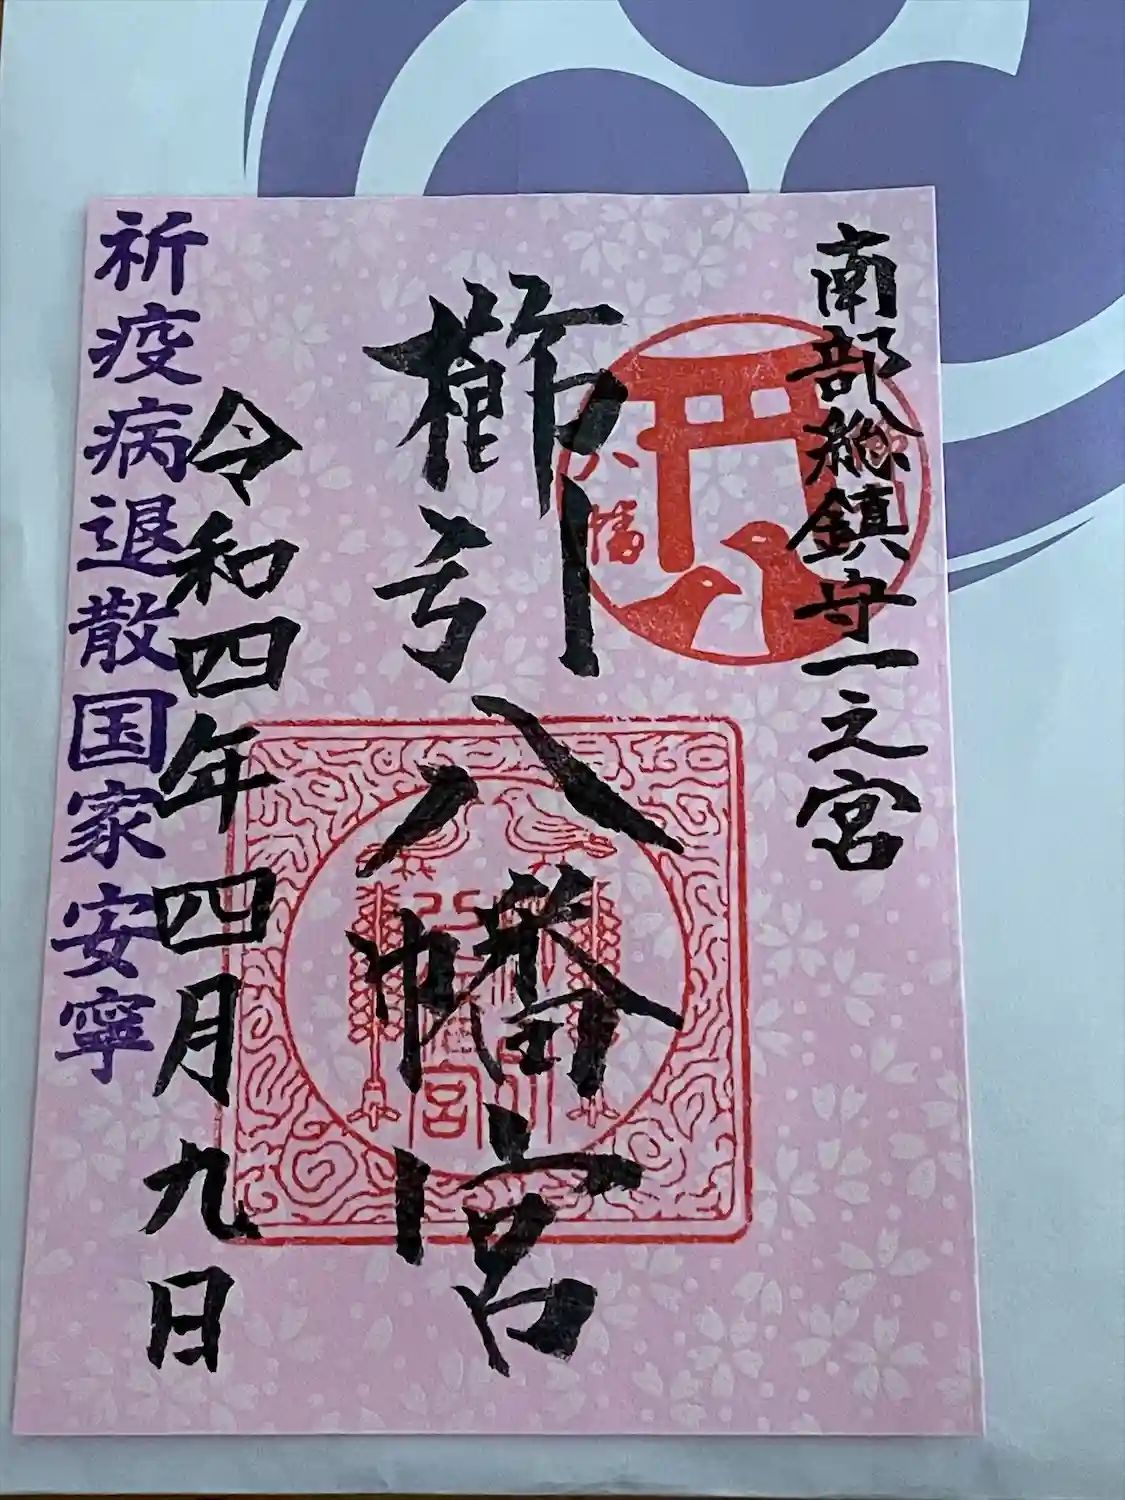 南部総鎮守一之宮
櫛引八幡宮
令和四年四月九日
祈疫病退散国家安寧
八幡
宮